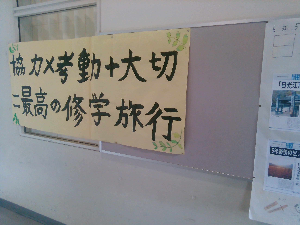 協力×考動+大切
=最高の修学旅行
「日光江